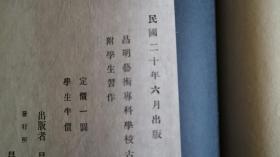 民國二十年六月出版
昌明藝術專科學校古
附學生習作
定價一圓
學生半價
出版者
發行所